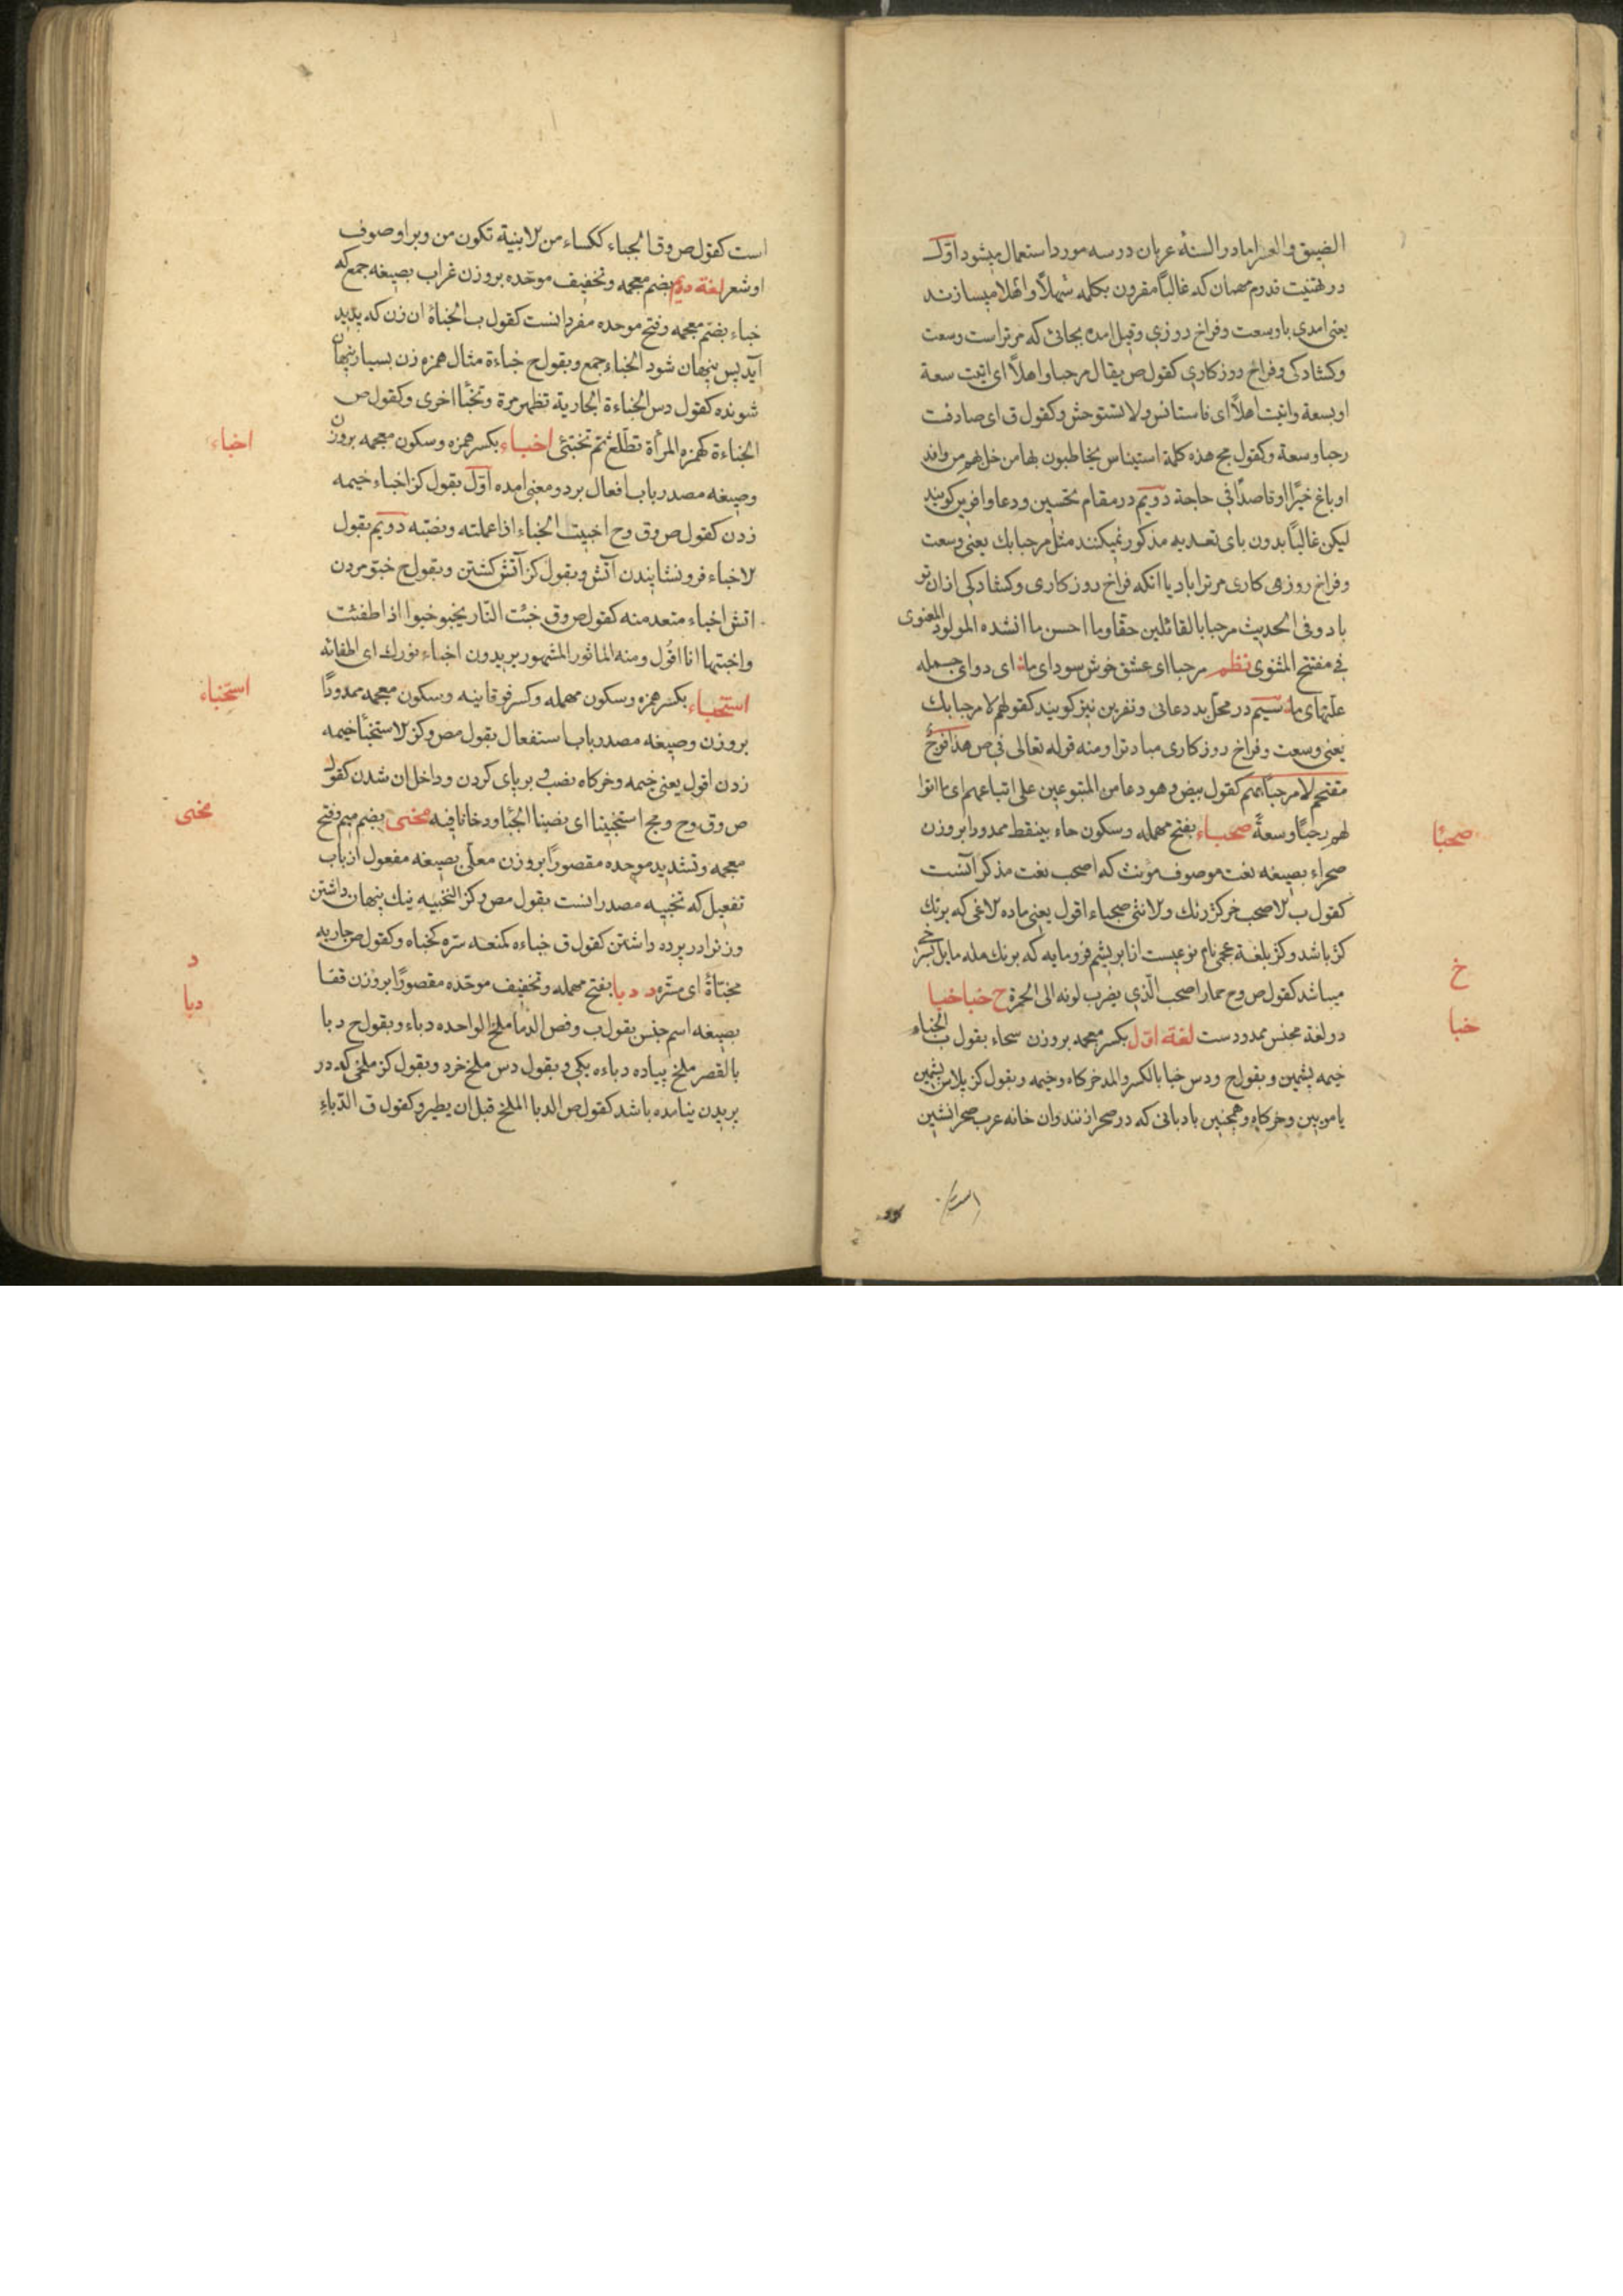 الضیق والعسر اما در السنهٔ عربان در سه مورد استعمال میشود اوّل
در تهنیت قدوم مهمان که غالباً مقرون بکلمه سَهلاً واَهلا میسازند
یعنی امدی با وسعت وفراخ روزی وقبل امدن بجائی که مر تراست وسعت
وکشادکی وفراخ روزکاری کقول ص یقال مرحبا واهلاً ای اتیت سعة
اوبسعة واتیت اهلاً ای فاستانس ولا تستوحش وکقول ق ای صادفت
رحبا وسعة وکقول مج هذه کلمة استیناس یخاطبون بها من حل بهم من وافد
اوباغ خیرًا اوقاصدًا فی حاجة دویم در مقام تحسین ودعا وافرین کویند
لیکن غالبًا بدون بای تعدیه مذکور نمیکنند مثل مرحبا بک یعنی وسعت
وفراخ روزی کاری مر ترا باد یا انکه فراخ روزکاری وکشادکی ازان تو
باد وفی الحدیث مرحبا بالقائلین حقّا وما احسن ما انشده المولود المعنوی
فی مفتتح المثنوی نظم مرحبا ای عشق خوش سودای ما ای دوای جمله
علتهای ما سیم در محل بد دعائی ونفرین نیز کویند کقولهم لا مرحبا بک
یعنی وسعت وفراخ روزکاری مبادترا ومنه قوله تعالی فی ص هذا فوج
مقتحم لا مرحبًا بهم کقول بیض وهو دعا من المتبوعین علی اتباعهم ای ما اتوا
لهم رحبًا وسعةً صحباء بفتح مهمله وسکون حاء بینقط ممدودا بروزن
صحبًا
صحراء بصیغه نعت موصوف مؤنث که اصحب نعت مذکر آنست
کقول ب الاصحب خر کژ رنک والانثی صحباء اقول یعنی ماده لاغی که برنک
کژ باشد وکژ بلغة عجمی نام نوعیست از ابریشم فرومایه که برنک مله مایل بسرخی
میباشد کقول ص وح حمار اصحب الّذی یضرب لونه الی الحمرة خ خبا خبا
خ
در لغة مجنس ممدودست لغة اول بکسر معجمه بروزن سحاء بقول ب الخباء
خبا
خیمه پشمین وبقول ح ودس خبا بالکسر والمد خرکاه وخیمه وبقول کز پلاس پشمین
یا مویین وخرکاه وهمچنین بادبانی که در صحرا زنند وان خانه عرب صحرا نشین
است کقول ص وق الخباء ککساء من الابنیة تکون من وبر اوصوف
اوشعر لغة دویم بضم معجمه وتخفیف موحّده بروزن غراب بصیغه جمع که
خباء بضم معجمه وفتح موحده مفرد انست کقول ب الخباة ان زن که پدید
آید پس پنهان شود الخباء جمع وبقول ح خباءة مثال همزه زن بسیار پنهان
شونده کقول دس الخباءة الجاریة تظهر مرة وتخبأ اخری وکقول ص
الخباءة کهمزه المرأة تطّلع ثم تختبئ اخباء بکسر همزه وسکون معجمه بروزن
اخباء
وصیغه مصدر باب افعال بر دو معنی امده اوّل بقول کز اخباء خیمه
زدن کقول ص وق وح اخبیت الخباء اذا عملته ونصبته دویم بقول
لاخباء فرونشانیدن آتش وبقول کز آتش کشتن وبقول ح خبو مردن
اتش اخباء متعد منه کقول ص وق خبت النّار یخبو خبوا اذا طفئت
واخبتها انا اقول ومنه الماثور المشهور یریدون اخباء نورک ای اطفائه
استخباء بکسر همزه وسکون مهمله وکسر فوقانیه وسکون معجمه ممدودًا
استخباء
بروزن وصیغه مصدر باب استفعال بقول مص وکز الاستخبأ خیمه
زدن اقول یعنی خیمه وخرکاه نصب وبرپای کردن وداخل ان شدن کقول
ص وق وح ومج استخبینا ای نصبنا الخبأ ودخلنا فیه مخبی بضم میم وفتح
مخبی
معجمه وتشدید موحده مقصورًا بروزن معلّی بصیغه مفعول از باب
تفعیل که تخبیه مصدر انست بقول مص وکز التخبیه نیک پنهان داشتن
وزنرا در پرده داشتن کقول ق خباءه کمنعه ستره کخباه وکقول ص جاریه
مخبّاةُ ای مستّره د دبا بفتح مهمله وتخفیف موحّده مقصورًا بروزن قفا
د
دبا
بصیغه اسم جنس بقول ب وفص الدبا ملخ الواحده دباء وبقول ح دبا
بالقصر ملخ پیاده دباءه یکی وبقول دس ملخ خرد وبقول کز ملخی که در
پریدن نیامده باشد کقول ص الدبا الملخ قبل ان یطیر وکقول ق الدّباء